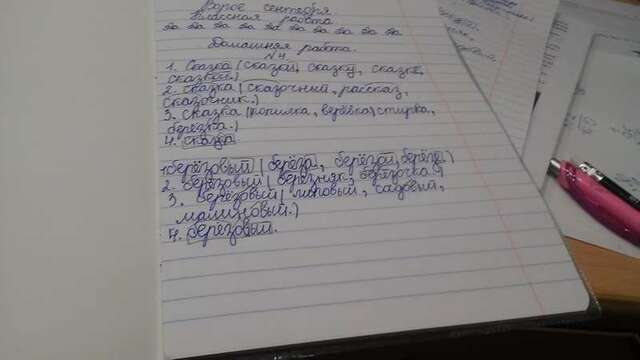 Второе сентября.
Классная работа
За За За За За За За За За За
Домашняя работа.
№4.
1. Сказка (сказки, сказку, сказке,
сказкой.)
2. сказка (сказочный, рассказ,
сказочник.)
3. сказка (копилка, верёвка, стирка,
берёзка.)
4. сказка
1. берёзовый (берёза, берёзой, берёзе.)
2. берёзовый (березняк, берёзочка.)
3. берёзовый (липовый, садовый,
малиновый.)
4. берёзовый.